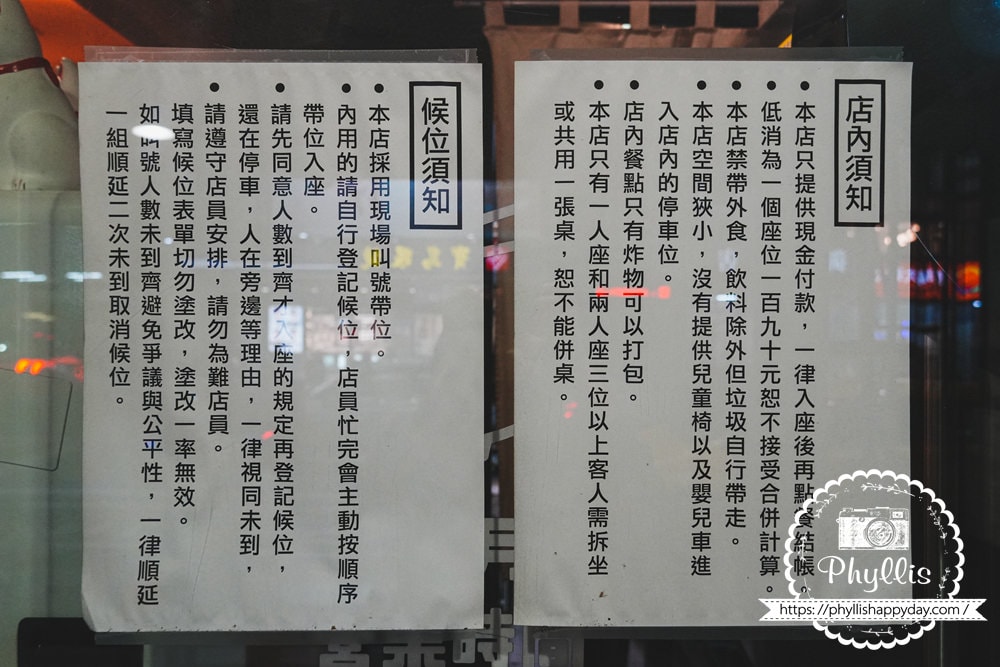 店內須知
●本店只提供現金付款，一律入座後再點餐結帳。
●低消為一個座位一百九十元恕不接受合併計算。
●本店禁帶外食，飲料除外但垃圾自行帶走。
●本店空間狹小，沒有提供兒童椅以及嬰兒車進
入店內的停車位。
●店內餐點只有炸物可以打包。
●本店只有一人座和兩人座三位以上客人需拆坐
或共用一張桌，恕不能併桌。
候位須知
●本店採用現場叫號帶位。
●內用的請自行登記候位，店員忙完會主動按順序
帶位入座。
●請先同意人數到齊才入座的規定再登記候位，
還在停車，人在旁邊等理由，一律視同未到，
●請遵守店員安排，請勿為難店員。
填寫候位表單切勿塗改，塗改一率無效。
如叫號人數未到齊避免爭議與公平性，一律順延
一組順延二次未到取消候位。
Phyllis
https://phyllishappyday.com/